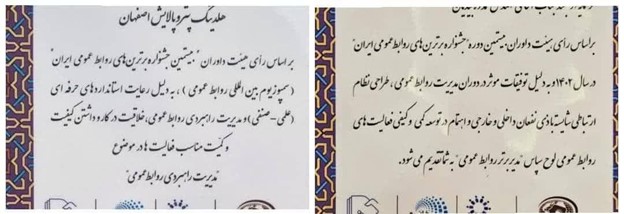 هلدینگ پتروپالایش اصفهان
بر اساس رأی هیئت داوران "بیستمین جشنواره برترین‌های روابط عمومی ایران"
(سمپوزیوم بین المللی روابط عمومی) ، به دلیل رعایت استانداردهای حرفه ای
(علمی-صنفی) و مدیریت راهبردی روابط عمومی، خلاقیت در کار و داشتن کیفیت
و کمیت مناسب فعالیت ها در موضوع
"مدیریت راهبردی روابط عمومی"
بر اساس رأی هیئت داوران بیستمین دوره "جشنواره برترین‌های روابط عمومی ایران"
در سال ۱۴۰۲ و به دلیل توفیقات موثر در دوران مدیریت روابط عمومی، طراحی نظام
ارتباطی شایسته با ذی نفعان داخلی و خارجی و اهتمام در توسعه کمی و کیفی فعالیت های
روابط عمومی لوح سپاس "مدیر برتر روابط عمومی" به شما تقدیم می شود.